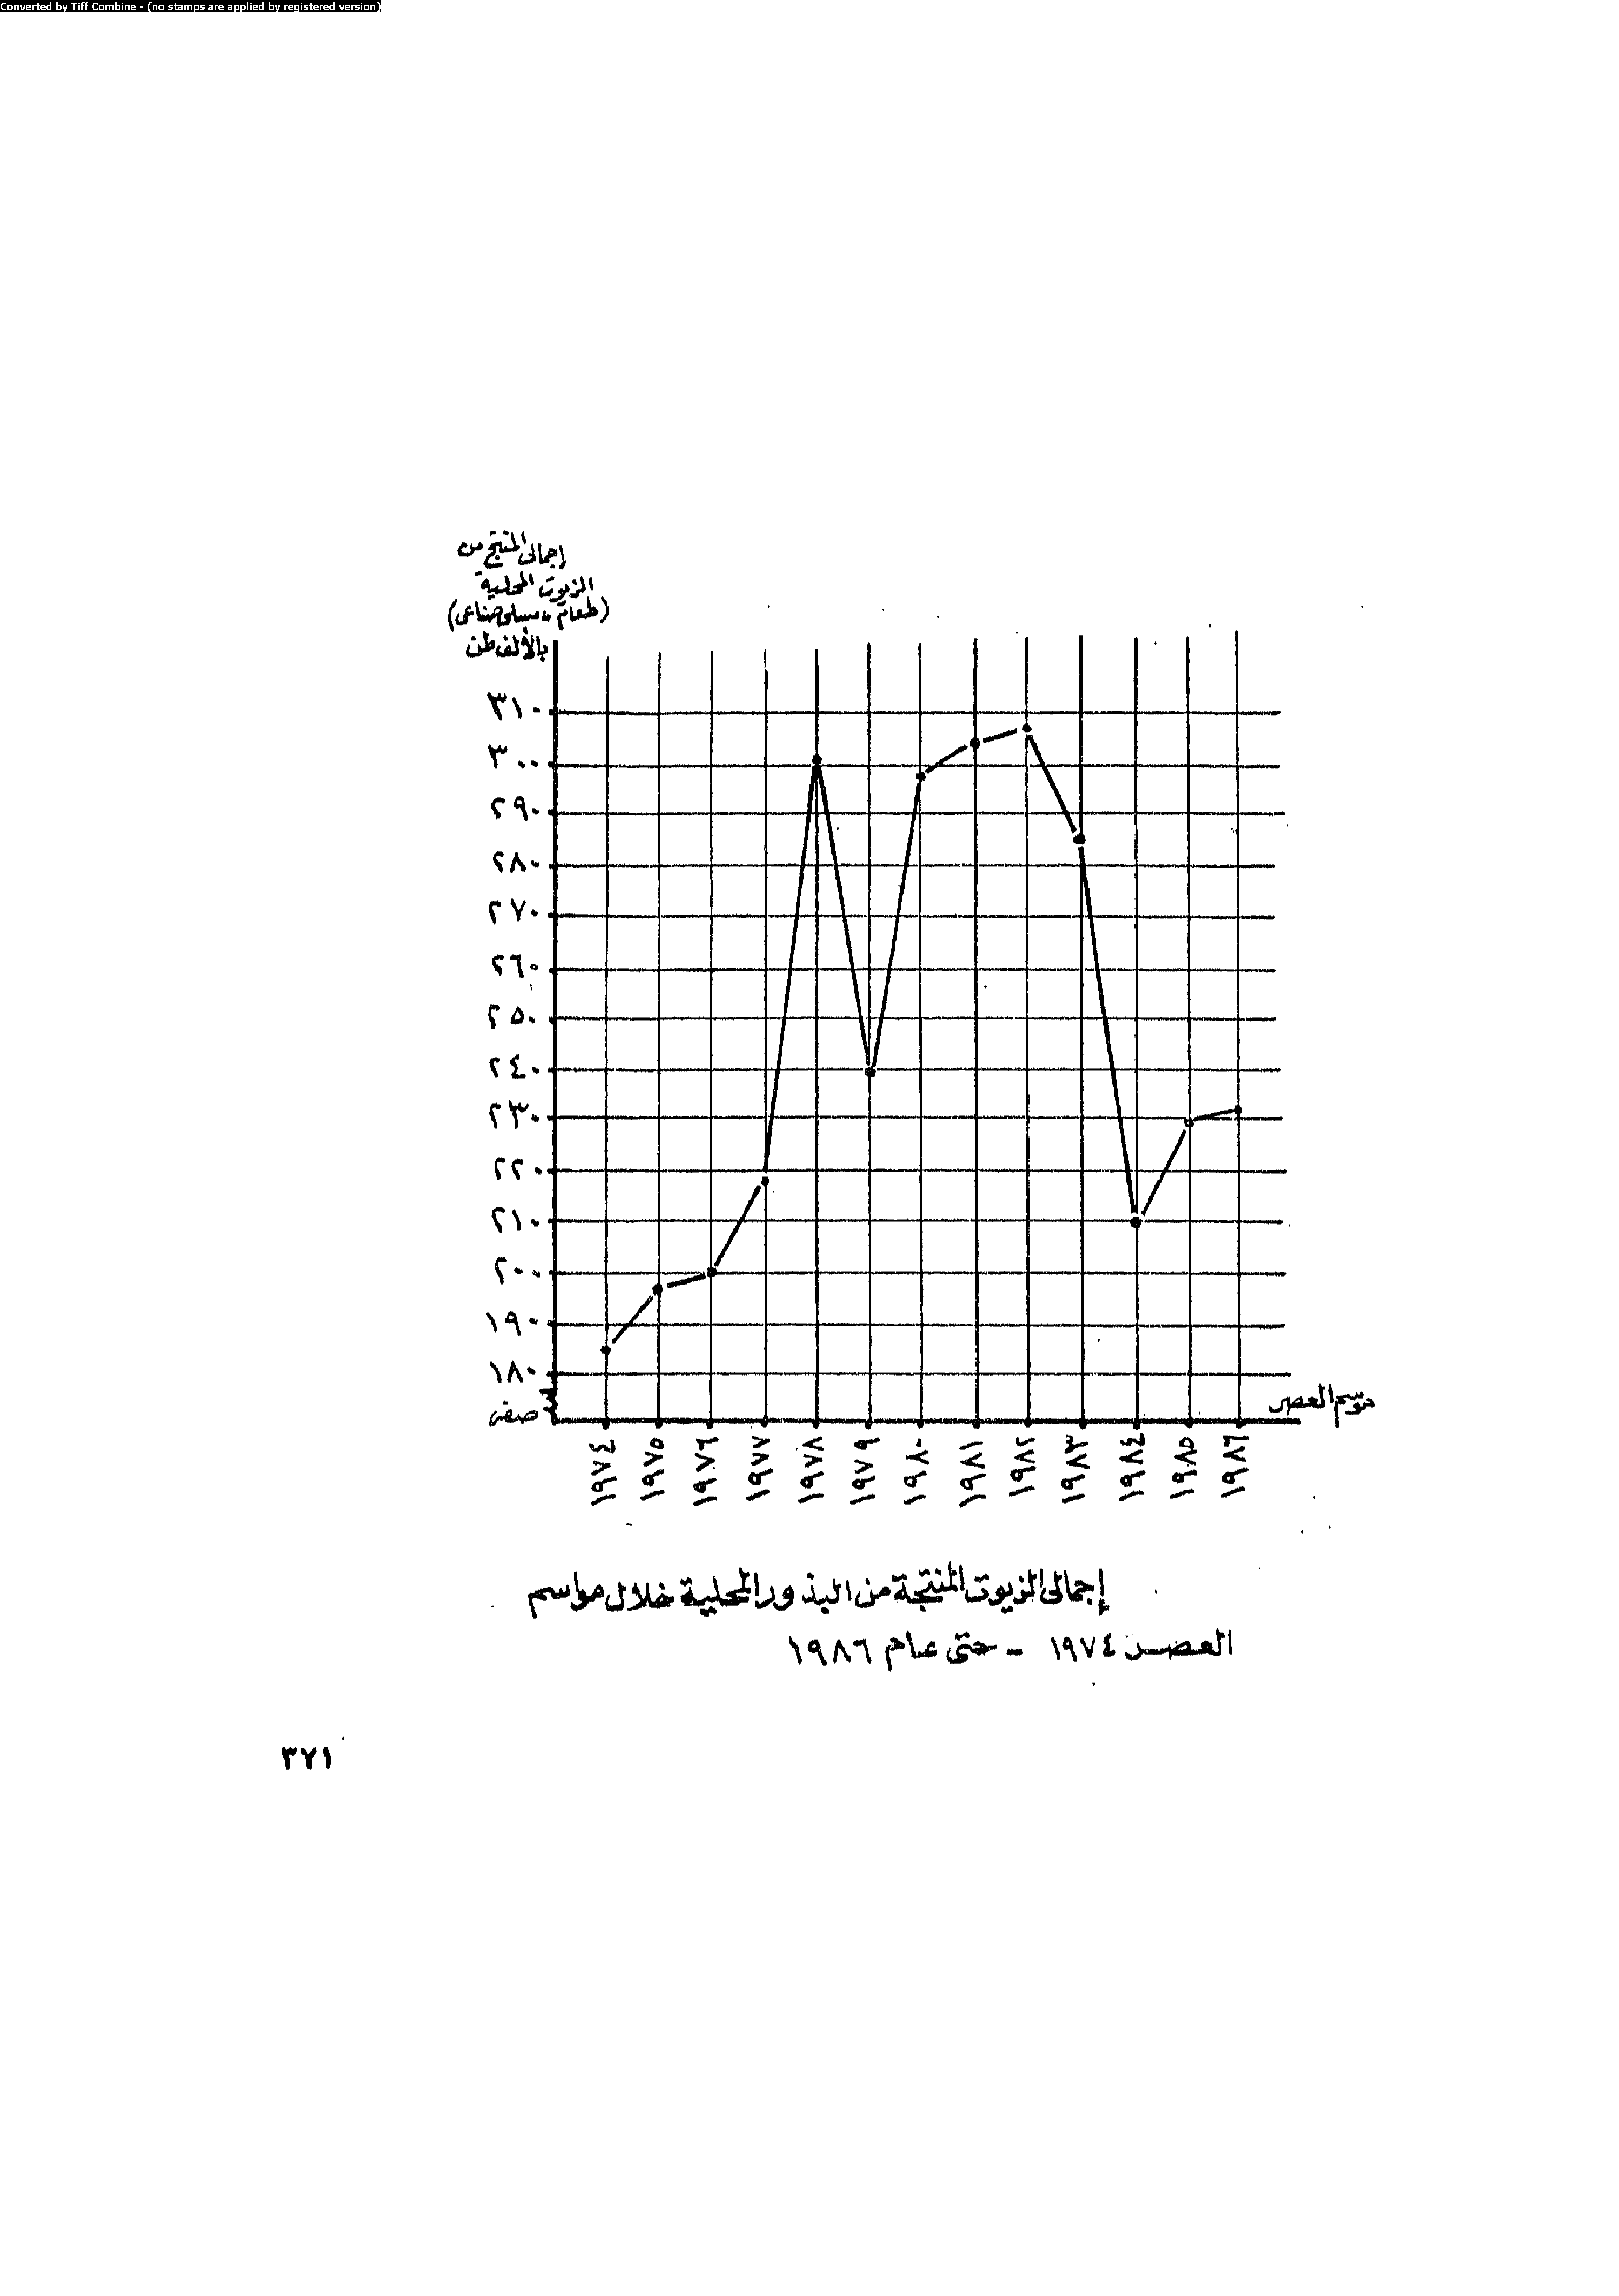 Converted by Tiff Combine - (no stamps are applied by registered version)
إجمالى المنتج من
الزيوت المحلية
(طعام، مسلى صناعى)
بالألف طن
٣١٠
٣٠٠
٢٩٠
٢٨٠
٢٧٠
٢٦٠
٢٥٠
٢٤٠
٢٣٠
٢٢٠
٢١٠
٢٠٠
١٩٠
١٨٠
صفر
موسم العصر
١٩٧٤
١٩٧٥
١٩٧٦
١٩٧٧
١٩٧٨
١٩٧٩
١٩٨٠
١٩٨١
١٩٨٢
١٩٨٣
١٩٨٤
١٩٨٥
١٩٨٦
إجمالى الزيوت المنتجة من البذور المحلية خلال مواسم
العصر ١٩٧٤ - حتى عام ١٩٨٦
٣٧١